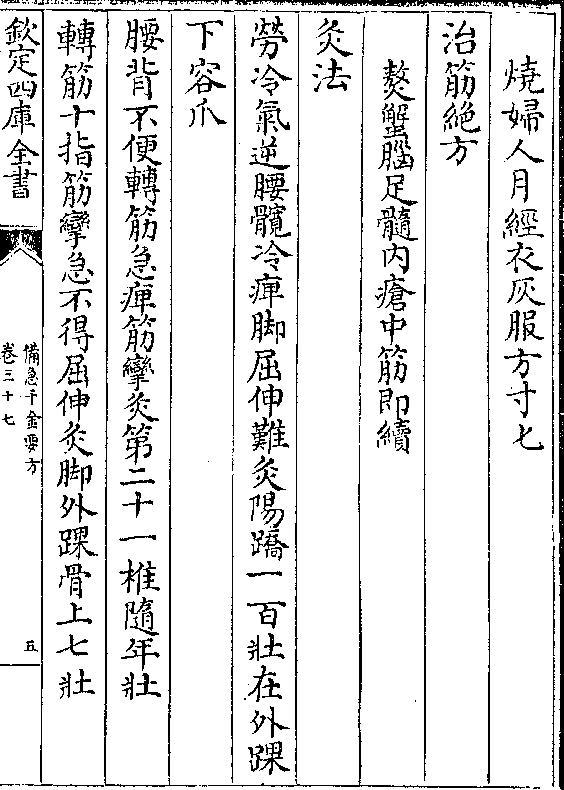 燒婦人月經衣灰服方寸匕
治筋絶方
熬蟹腦足髓内瘡中筋即續
灸法
勞冷氣逆腰髖冷痺脚屈伸難灸陽蹻一百壯在外踝
下容爪
腰背不便轉筋急痺筋攣灸第二十一椎隨年壯
轉筋十指筋攣急不得屈伸灸脚外踝骨上七壯
欽定四庫全書
備急千金要方
卷三十七
五